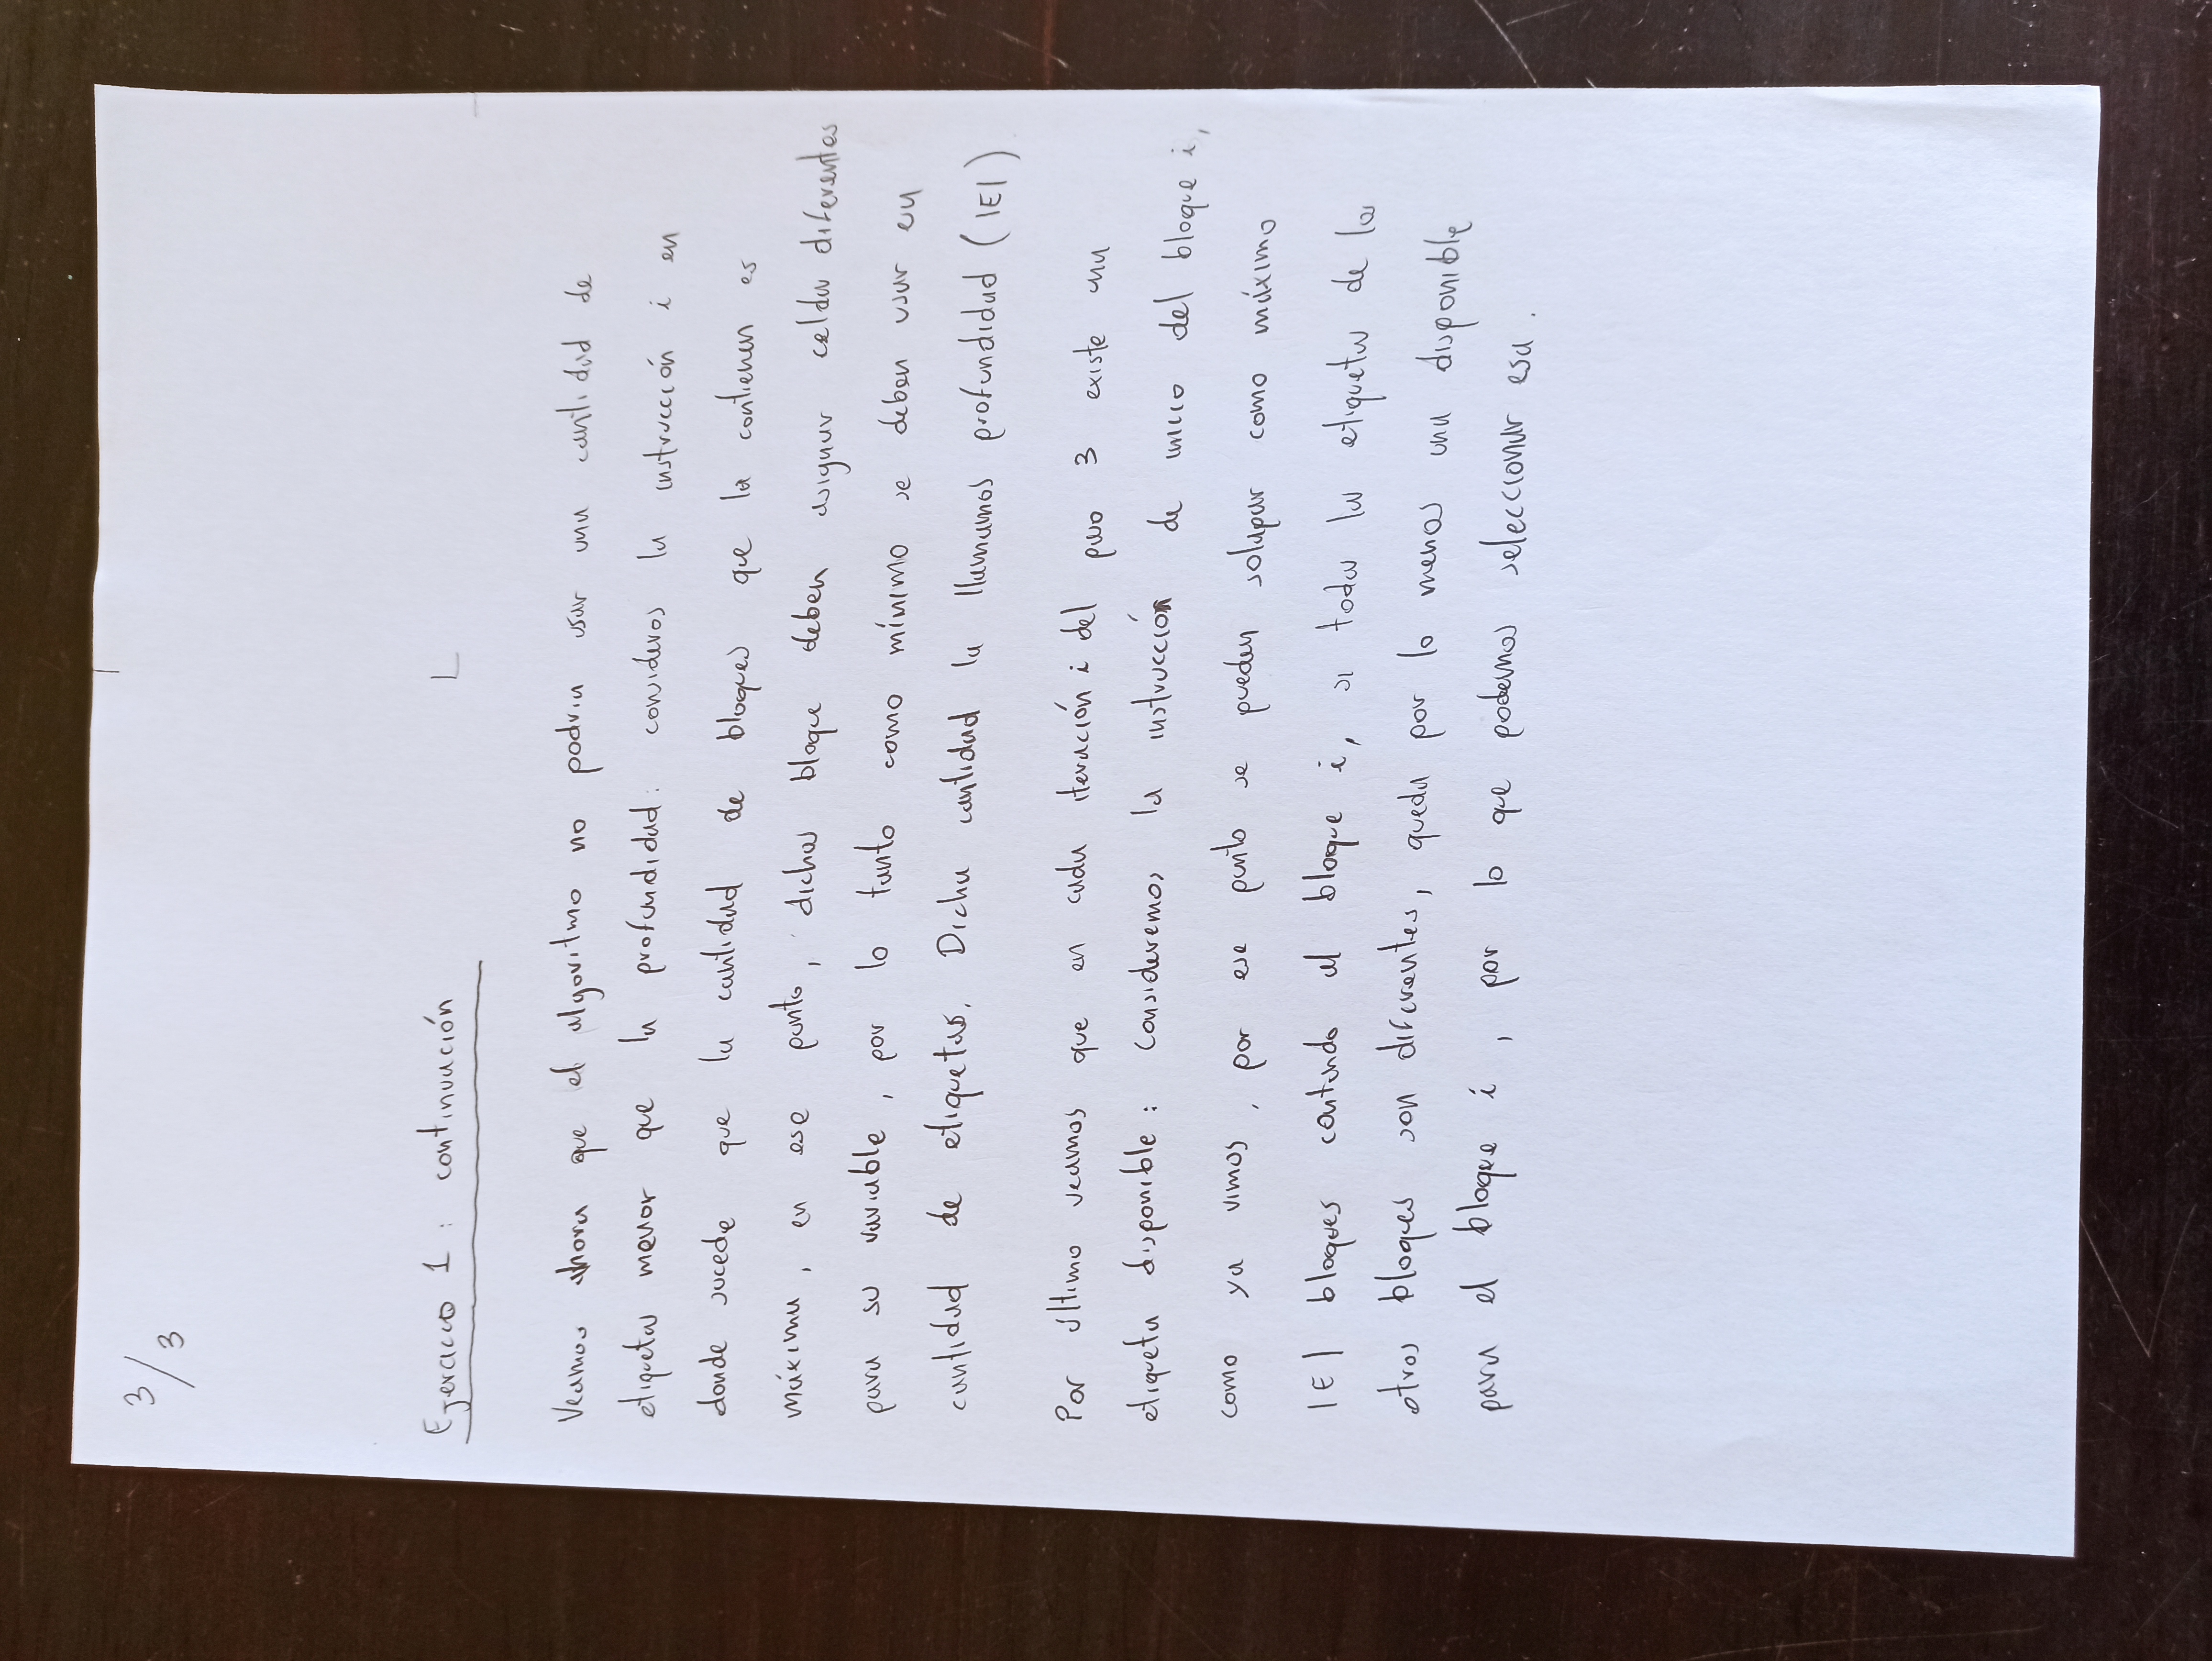 3/3
Ejercicio 1: continuación
Veamos ahora que el algoritmo no podria usar una cantidad de
etiquetas menor que la profundidad: consideros la instrucción i en
donde sucede que la cantidad de bloques que la contienen es
máxima, en ese punto, dichos bloque deben asignar celdas diferentes
para su variable, por lo tanto como mínimo se deben usar esa
cantidad de etiquetas. Dicha cantidad la llamamos profundidad (|E|)
Por último veamos que en cada iteración i del paso 3 existe una
etiqueta disponible: Consideremos la instrucción de inicio del bloque i,
como ya vimos, por ese punto se pueden solapar como máximo
|E| bloques contando al bloque i, si todas las etiquetas de los
otros bloques son diferentes, queda por lo menos una disponible
para el bloque i, por lo que podemos seleccionar esa.